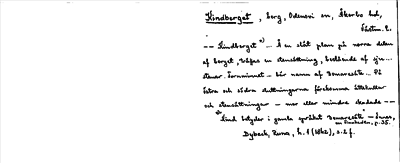 Kindberget, berg, Odensvi sn, Åkerbo hd,
Västm. l.
-- Kindberget *) -- Å en slät plan på norra delen
af berget, träffas en stensättning, bestående af sju...
stenar. Fornminnet -- bär namn af Domaresäte... På
östra och södra sluttningarne förekomma ättekullar
och stensättningar -- mer eller mindre skadade --
*) Kind betyder i gamla språket Domaresäte --
Dybeck, Runa, h. 1 (1842), s. 2 f.